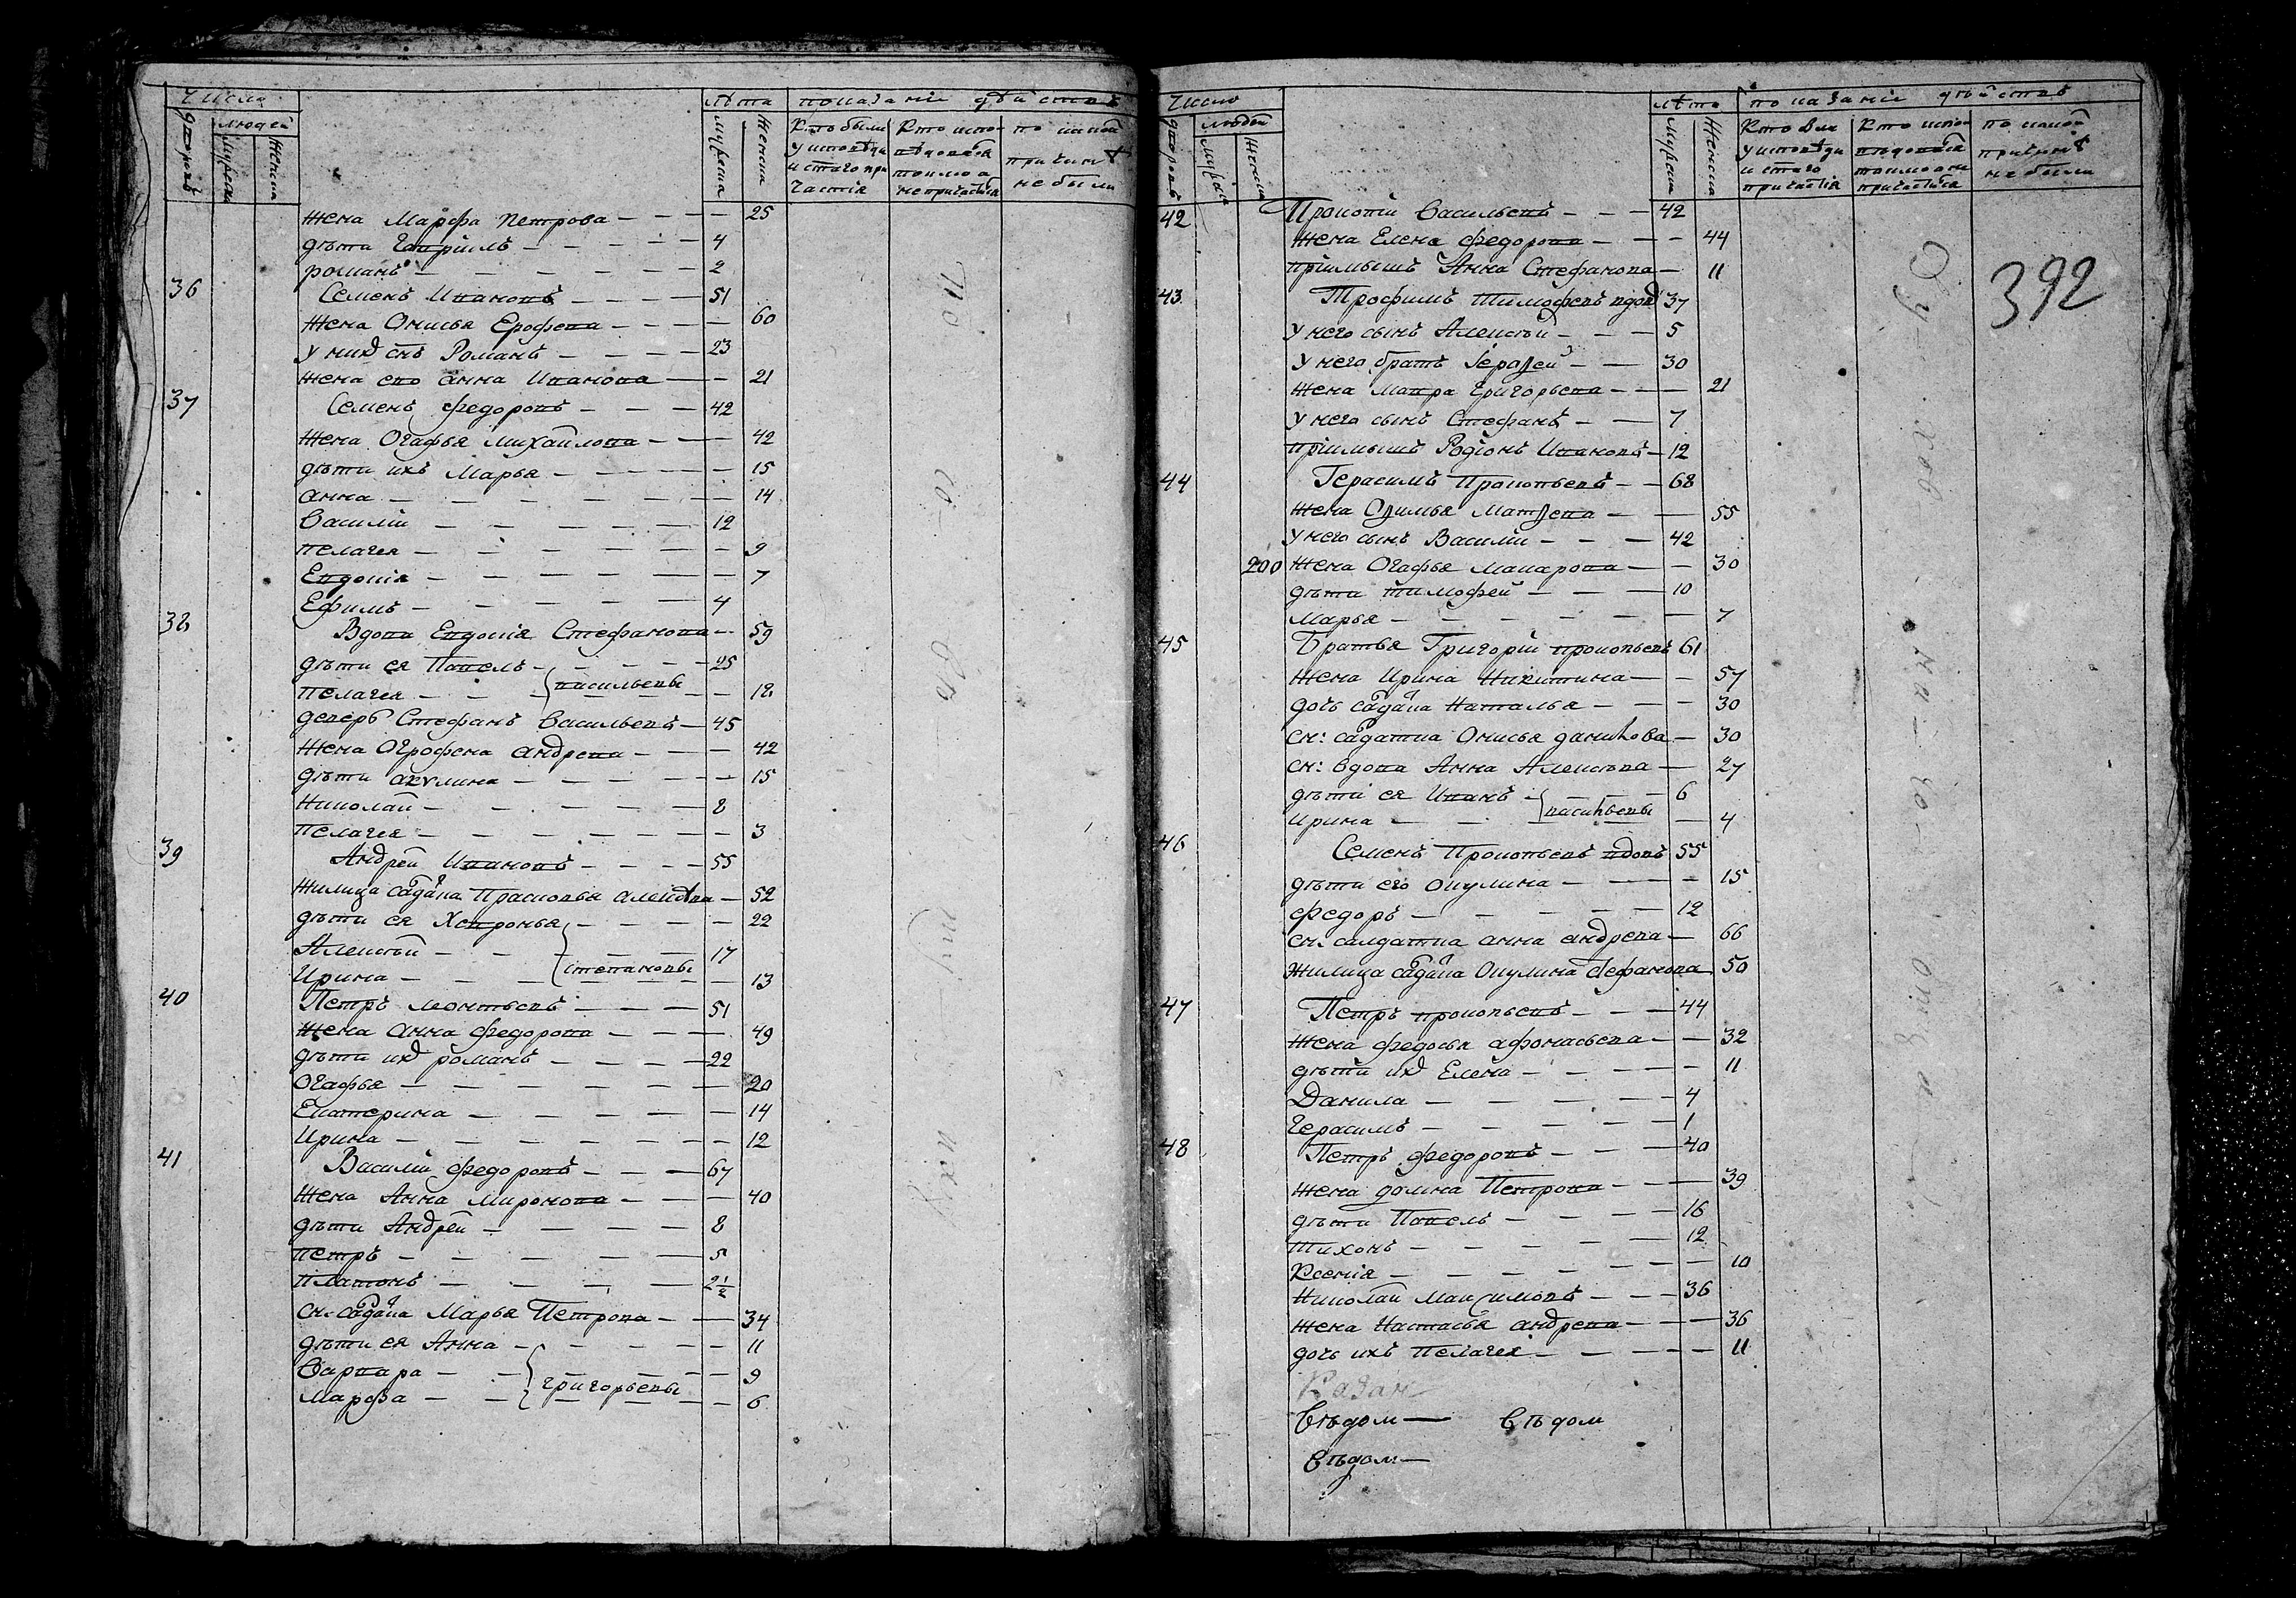 Число
лѣта показанiе дѣйствъ
людей
дворовъ
мужеска
женска
мужеска
женска
Кто были у исповѣди и стаго причастiя
Кто исповѣдовался токмо а не причастился
по какой причинѣ не были
жена Марѳа Петрова — — — — 25
дѣти Гаврiилъ — — — — 4
романъ — — — — — 2
36 Семенъ Ивановъ — — — — 51
жена Онисья Ерофева — — — — 60
у них снъ Романъ — — — — 23
жена его анна Иванова — — 21
37 Семенъ федоровъ — — — 42
жена Огафья михайлова — — — 42
дѣти ихъ Марья — — — — — 15
анна — — — — — — 14
Василiй — — — — — 12
пелагея — — — — — — 9
Евдокiя — — — — — — 7
Ефимъ — — — — — 4
38 Вдова Евдокiя Стефанова — 59
дѣти ея Павелъ — — — — — 25
пелагея — — — васильевы — — 18
деверь Стефанъ Васильевъ — 45
жена Огрофена андрева — — — 42
дѣти акулина — — — — — 15
Николай — — — — — 8
пелагея — — — — — — 3
39 Андрей Ивановъ — — — — 55
жилица салдатка Прасковья алексѣва — 52
дѣти ея Хевронья — — — — 22
Алексѣй — — — — — 17
Ирина — — — степановы — — 13
40 Петръ леонтьевъ — — — 51
жена анна федорова — — — — 49
дѣти их романъ — — — — 22
Огафья — — — — — — 20
Екатерина — — — — — 14
Ирина — — — — — — 12
41 Василiй федоровъ — — — 67
жена Анна миронова — — — 40
дѣти Андрей — — — — — 8
петръ — — — — — 5
платонъ — — — — 2½
сн: салдатка Марья Петрова — — 34
дѣти ея Анна — — — — — 11
Варвара — — — — — — 9
Марѳа — — григорьевы — — 6
Число
лѣта показанiе дѣйствъ
людей
дворовъ
мужеска
женска
мужеска
женска
Кто были у исповѣди и стаго причастiя
Кто исповѣдовался токмо а не причастился
по какой причинѣ не были
392
42 Прокопiй Васильевъ — — — 42
жена Елена федорова — — — 44
прiимышъ Анна Стефанова — 11
43 Трофимъ тимофевъ вдов 37
у него сынъ Алексѣй — — — 5
у него братъ Iеровей — — 30
жена Мавра Григорьева — — — 21
у него сынъ Стефанъ — — 7
прiимышъ Родiонъ Ивановъ — 12
44 Герасимъ Прокопьевъ — — 68
жена Овимья Матвева — — 55
у него сынъ Василiй — — — 42
200 жена Огафья Макарова — — 30
дѣти тимофей — — — 10
Марья — — — — — — 7
45 Братья Григорiй прокопьевъ 61
жена Ирина Никитина — — 57
дочь салдатка Наталья — — — 30
сн: салдатка Онисья данилова — 30
сн: вдова Анна Алексѣва — 27
дѣти ея Иванъ — — — 6
Ирина — — — васильевы — 4
46 Семенъ Прокопьевъ вдовъ 55
дѣти его окулина — — — — 15
федоръ — — — — — 12
сн: салдатка анна андрева — 66
жилица салдатка Окулина Стефанова 50
47 Петръ прокопьевъ — — — 44
жена федосья афонасьева — — 32
дѣти их Елена — — — — — 11
Данила — — — — — 4
Герасимъ — — — — — 1
48 Петръ федоровъ — — — 40
жена домна Петрова — — — 39
дѣти Павелъ — — — — 16
тихонъ — — — — — 12
Ксенiя — — — — — — 10
Николай максимовъ — — — 36
жена Настасья андрева — — — 36
дочь ихъ пелагея — — — — — 11
Казан
Вѣдом — Вѣдом
Вѣдом —